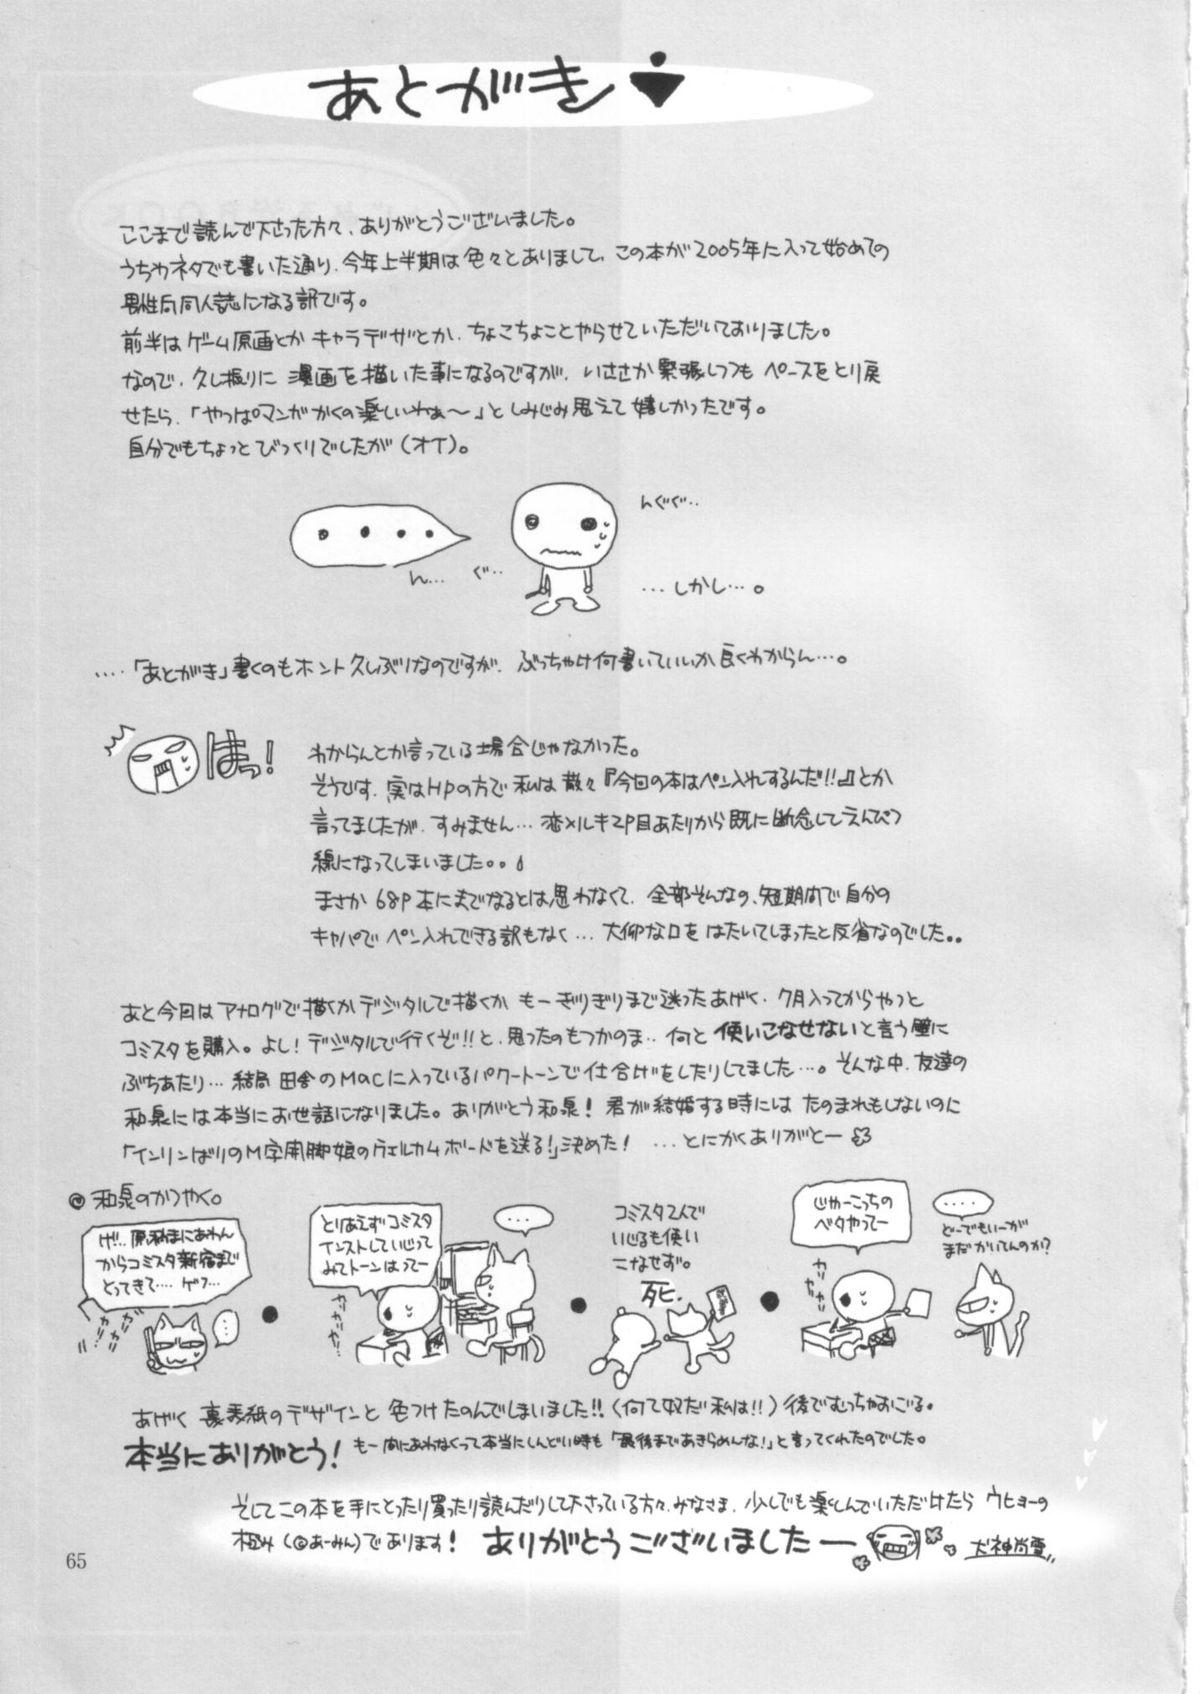 あとがき
ここまで読んで下さった方々、ありがとうございました。
うちわネタでも書いた通り、今年上半期は色々とありまして、この本が2005年に入って始めての
男性向同人誌になる訳です。
前半はゲーム原画とかキャラデザとか、ちょこちょことやらせていただいておりました。
なので、久し振りに漫画を描いた事になるのですが、いささか緊張しつつもペースをとり戻
せたら、「やっぱマンガかくの楽しいわぁ〜」としみじみ思えて嬉しかったです。
自分でもちょっとびっくりでしたが(オイ)。
んぐぐ…
ん… ぐ…
…しかし…。
….「あとがき」書くのもホント久しぶりなのですが、ぶっちゃけ何書いていいか良くわからん…。
はっ!
わからんとか言っている場合じゃなかった。
そうです、実はHPの方で私は散々『今回の本はペン入れするんだ!!』とか
言ってましたが、すみません…恋×ルキ2P目あたりから既に断念してえんぴつ
線になってしまいました。。
まさか68P本にまでなるとは思わなくて、全部そんなの、短期間で自分の
キャパでペン入れできる訳もなく…大仰な口をはたいてしまったと反省なのでした。。
あと今回はアナログで描くかデジタルで描くかもーぎりぎりまで迷ったあげく、7月入ってからやっと
コミスタを購入。よし!デジタルで行くぞ!!と、思ったのもつかのま‥何と使いこなせないと言う壁に
ぶちあたり…結局田舎のMacに入っているパワートーンで仕合げをしたりしてました…。そんな中、友達の
和泉には本当にお世話になりました。ありがとう和泉!君が結婚する時にはたのまれもしないのに
「インリンばりのM字開脚娘のウェルカムボードを送る!」決めた! …とにかくありがとー
◎和泉のかつやく。
げ!!.原稿まにあわん
からコミスタ新宿まで
とってきて….ゲフ…
…
とりあえずコミスタ
インストしていじって
みてトーンはってー
ガリガリ
….
コミスタ2人で
いじるも使い
こなせず。
死.
じゃーこっちの
ベタやってー
ガリガリ
….
どーでもいーが
まだかいてんのか?
あげく裏表紙のデザインと色つけたのんでしまいました!!(何て奴だ私は!!)後でむっちゃおごる。
本当にありがとう! もー間にあわなくって本当にしんどい時も「最後まであきらめんな!」と言ってくれたのでした。
そしてこの本を手にとったり買ったり読んだりして下さっている方々、みなさま、少しでも楽しんでいただけたらウヒョーの
極み(©あーみん)であります! ありがとうございましたー 犬神尚雪
65